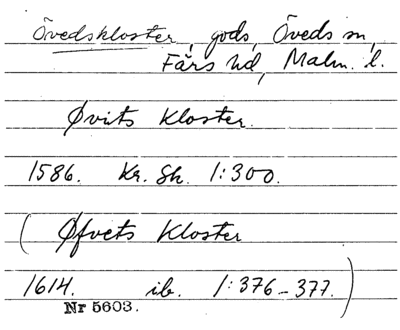 Övedskloster, gods, Öveds sn,
Färs hd, Malm. l.
Øvits Kloster.
1586. Kr. Sk. 1:300.
(Øfvets Kloster
1614. ib. 1:376-377.)
Nr 5603.